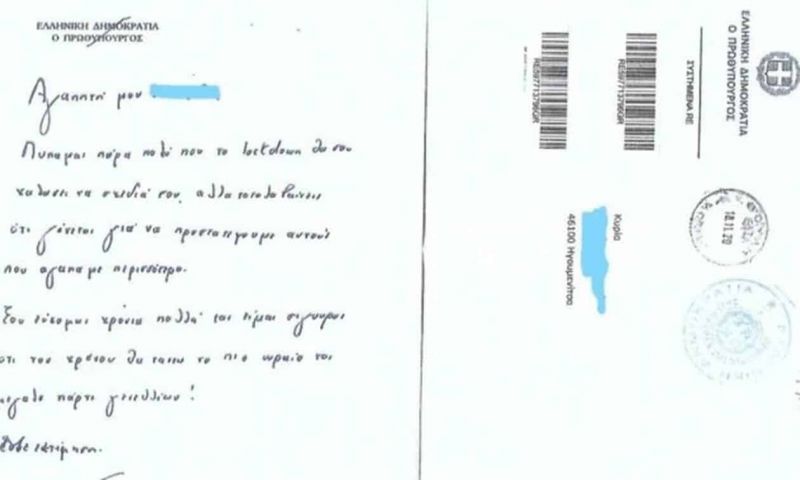 ΕΛΛΗΝΙΚΗ ΔΗΜΟΚΡΑΤΙΑ
Ο ΠΡΩΘΥΠΟΥΡΓΟΣ
Αγαπητή μου
Λυπαμαι πάρα πολύ που το lockdown θα σου
χαλάσει τα σχέδιά σου, αλλά καταλαβαίνεις
ότι γίνεται για να προστατέψουμε αυτούς
που αγαπάμε περισσότερο.
Σου εύχομαι χρόνια πολλά και είμαι σίγουρος
ότι του χρόνου θα κάνεις το πιο ωραίο και
μεγάλο πάρτι γενεθλίων!
ΕΛΛΗΝΙΚΗ ΔΗΜΟΚΡΑΤΙΑ
Ο ΠΡΩΘΥΠΟΥΡΓΟΣ
ΣΥΣΤΗΜΕΝΑ RE
RE597713796GR
RE597713796GR
Κυρία
46100 Ηγουμενίτσα
18.11.20